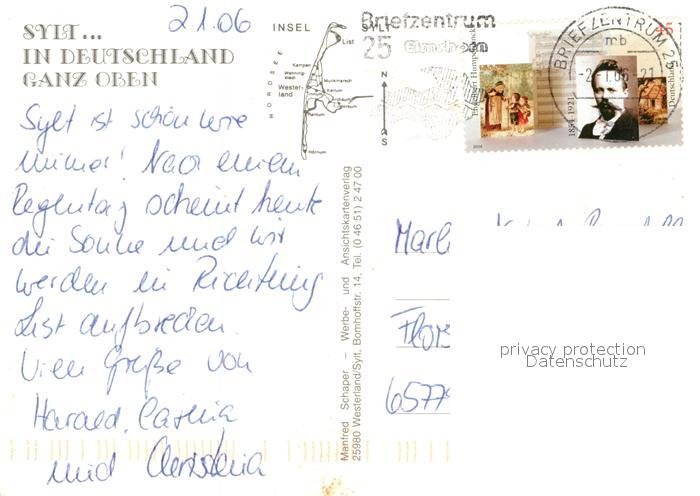 2.1.06
SYLT...
IN DEUTSCHLAND
GANZ OBEN
Sylt ist schön wie
immer! Nach einem
Regentag scheint heute
die Sonne und wir
werden in Richtung
List aufbrechen.
Viele Grüße von
Harald,
und Christina
INSEL SYLT
NORDSEE
List
Kampen
Wenning-
stedt
Munkmarsch
Wester-
land
Keitum
Rantum
Hörnum
N
S
Manfred Schaper – Werbe- und Ansichtskartenverlag
25980 Westerland/Sylt, Bomhoffstr. 14, Tel. (0 46 51) 2 47 00
Briefzentrum
25 Elmshorn
BRIEFZENTRUM 25
mb
21
45
Engelbert Humperdinck
1854-1921
Deutschland
2004
Marl
Flörs
6577
privacy protection
Datenschutz